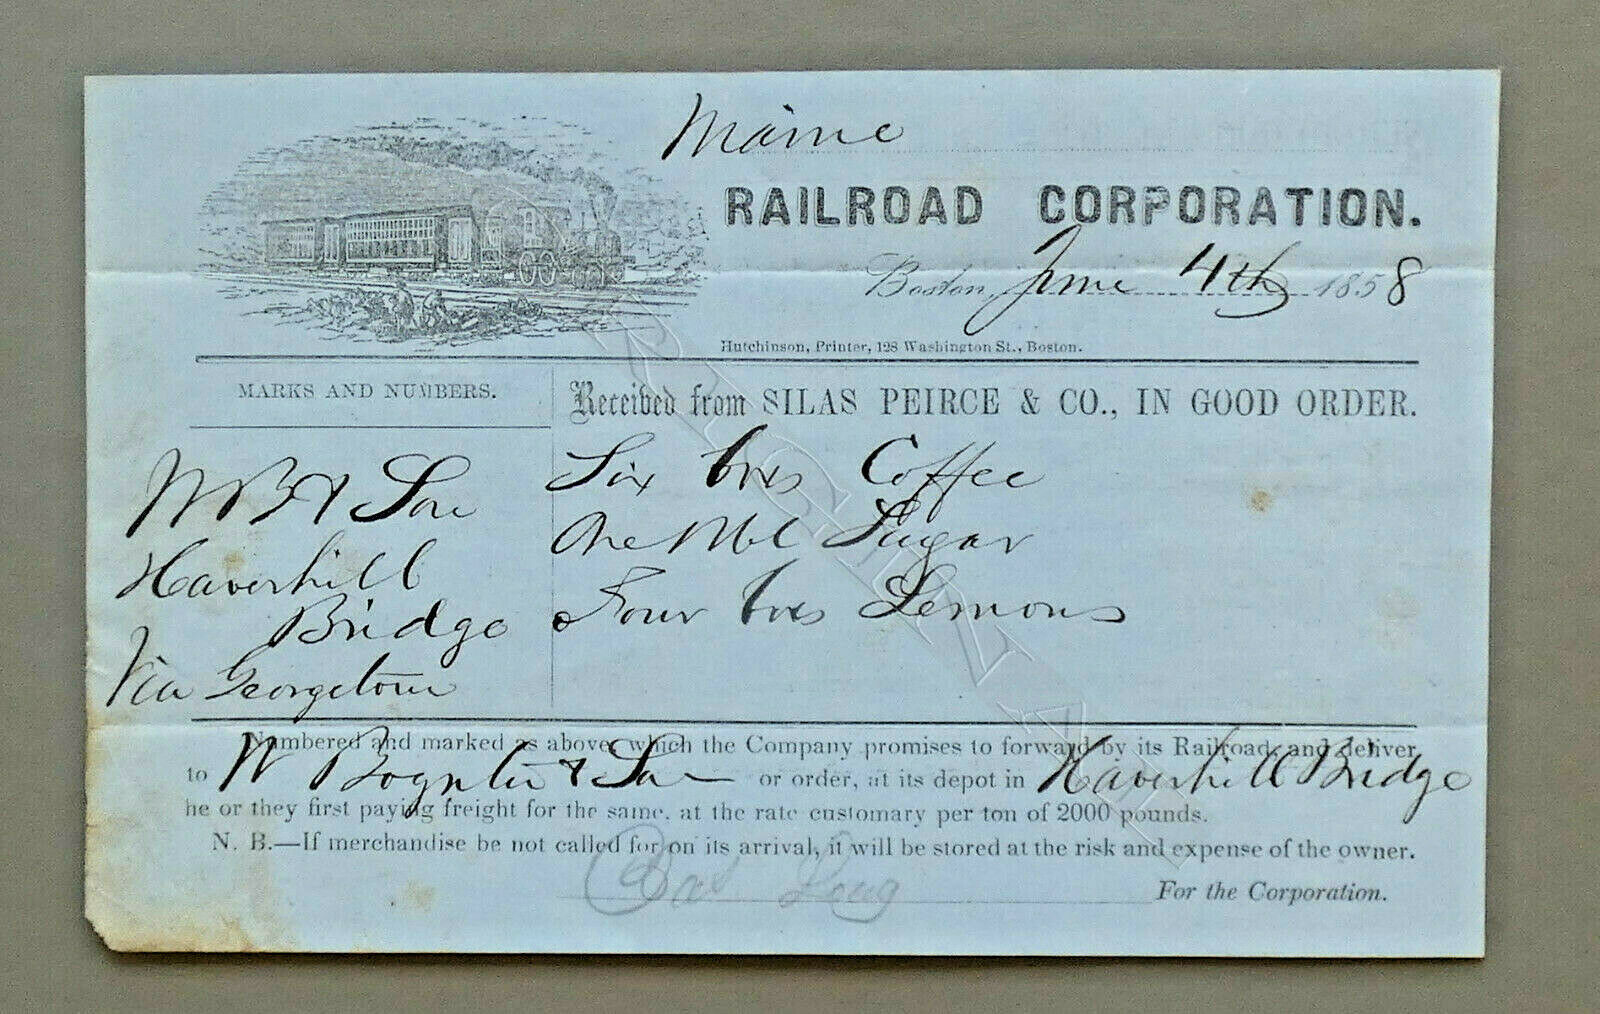 Maine
RAILROAD CORPORATION.
Boston, June 4th 1858
Hutchinson, Printer, 128 Washington St., Boston.
MARKS AND NUMBERS.
Received from SILAS PEIRCE & CO., IN GOOD ORDER.
W B & Son
Haverhill
Bridge
Via Georgetown
Six bxs Coffee
One Bbl Sugar
Four bxs Lemons
Numbered and marked as above, which the Company promises to forward by its Railroad, and deliver
to W Boynton & Son or order, at its depot in Haverhill Bridge
he or they first paying freight for the same, at the rate customary per ton of 2000 pounds.
N. B.—If merchandise be not called for on its arrival, it will be stored at the risk and expense of the owner.
Long
For the Corporation.
ORIGINAL